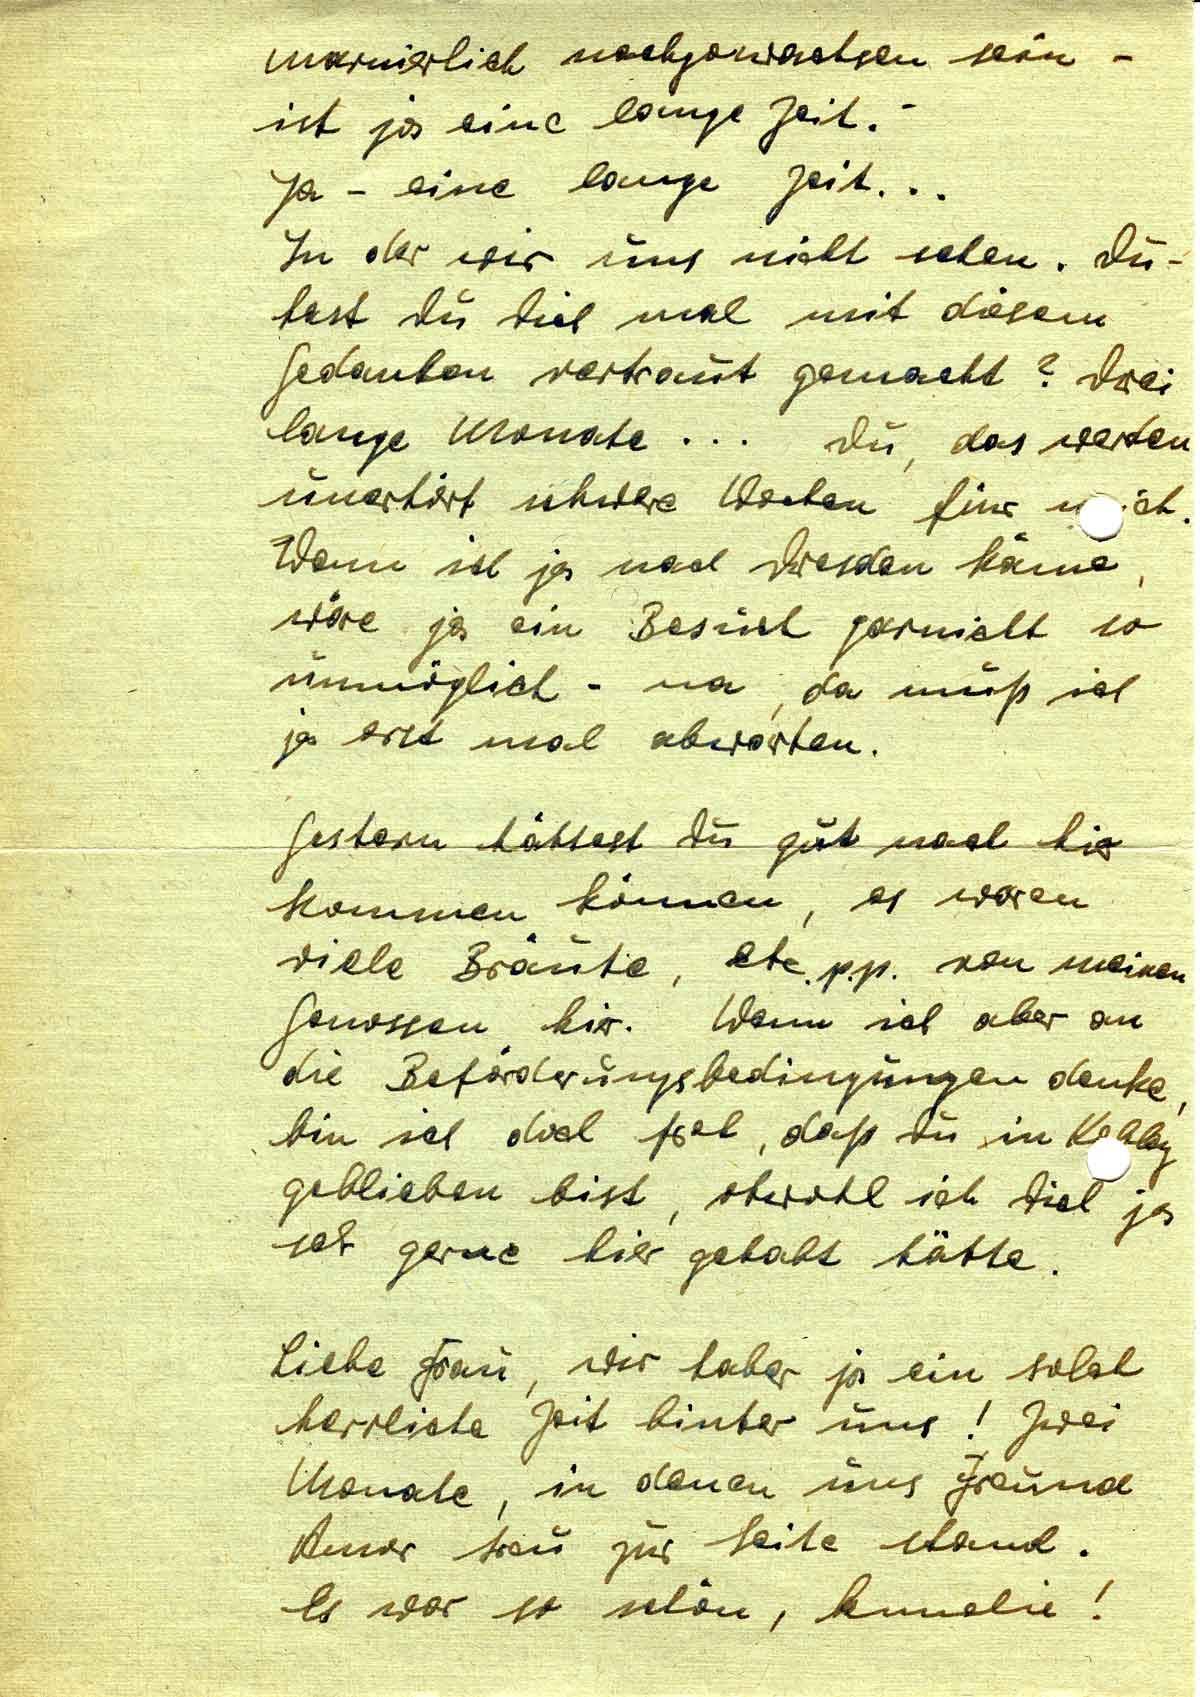 manierlich nachgewachsen sein -
ist ja eine lange Zeit.-
Ja - eine lange Zeit...
In der wir uns nicht sehen. Du -
hast Du Dich mal mit diesem
Gedanken vertraut gemacht? Drei
lange Monate ... Du, das werden
unerhört schwere Wochen für mich.
Wenn ich ja nach Dresden käme,
wäre ja ein Besuch garnicht so
unmöglich - na, da muß ich
ja erst mal abwarten.
Gestern hättest Du gut nach hier
kommen können, es waren
viele Bräute, etc. p.p. von meinen
Genossen hier. Wenn ich aber an
die Beförderungsbedingungen denke,
bin ich doch froh, daß Du in
geblieben bist, obwohl ich Dich ja
sehr gerne hier gehabt hätte.
Liebe Frau, wir haben ja ein solch
herrliche Zeit hinter uns! Zwei
Monate, in denen uns Freund
Amor treu zur Seite stand.
Es war so schön, Annelie!